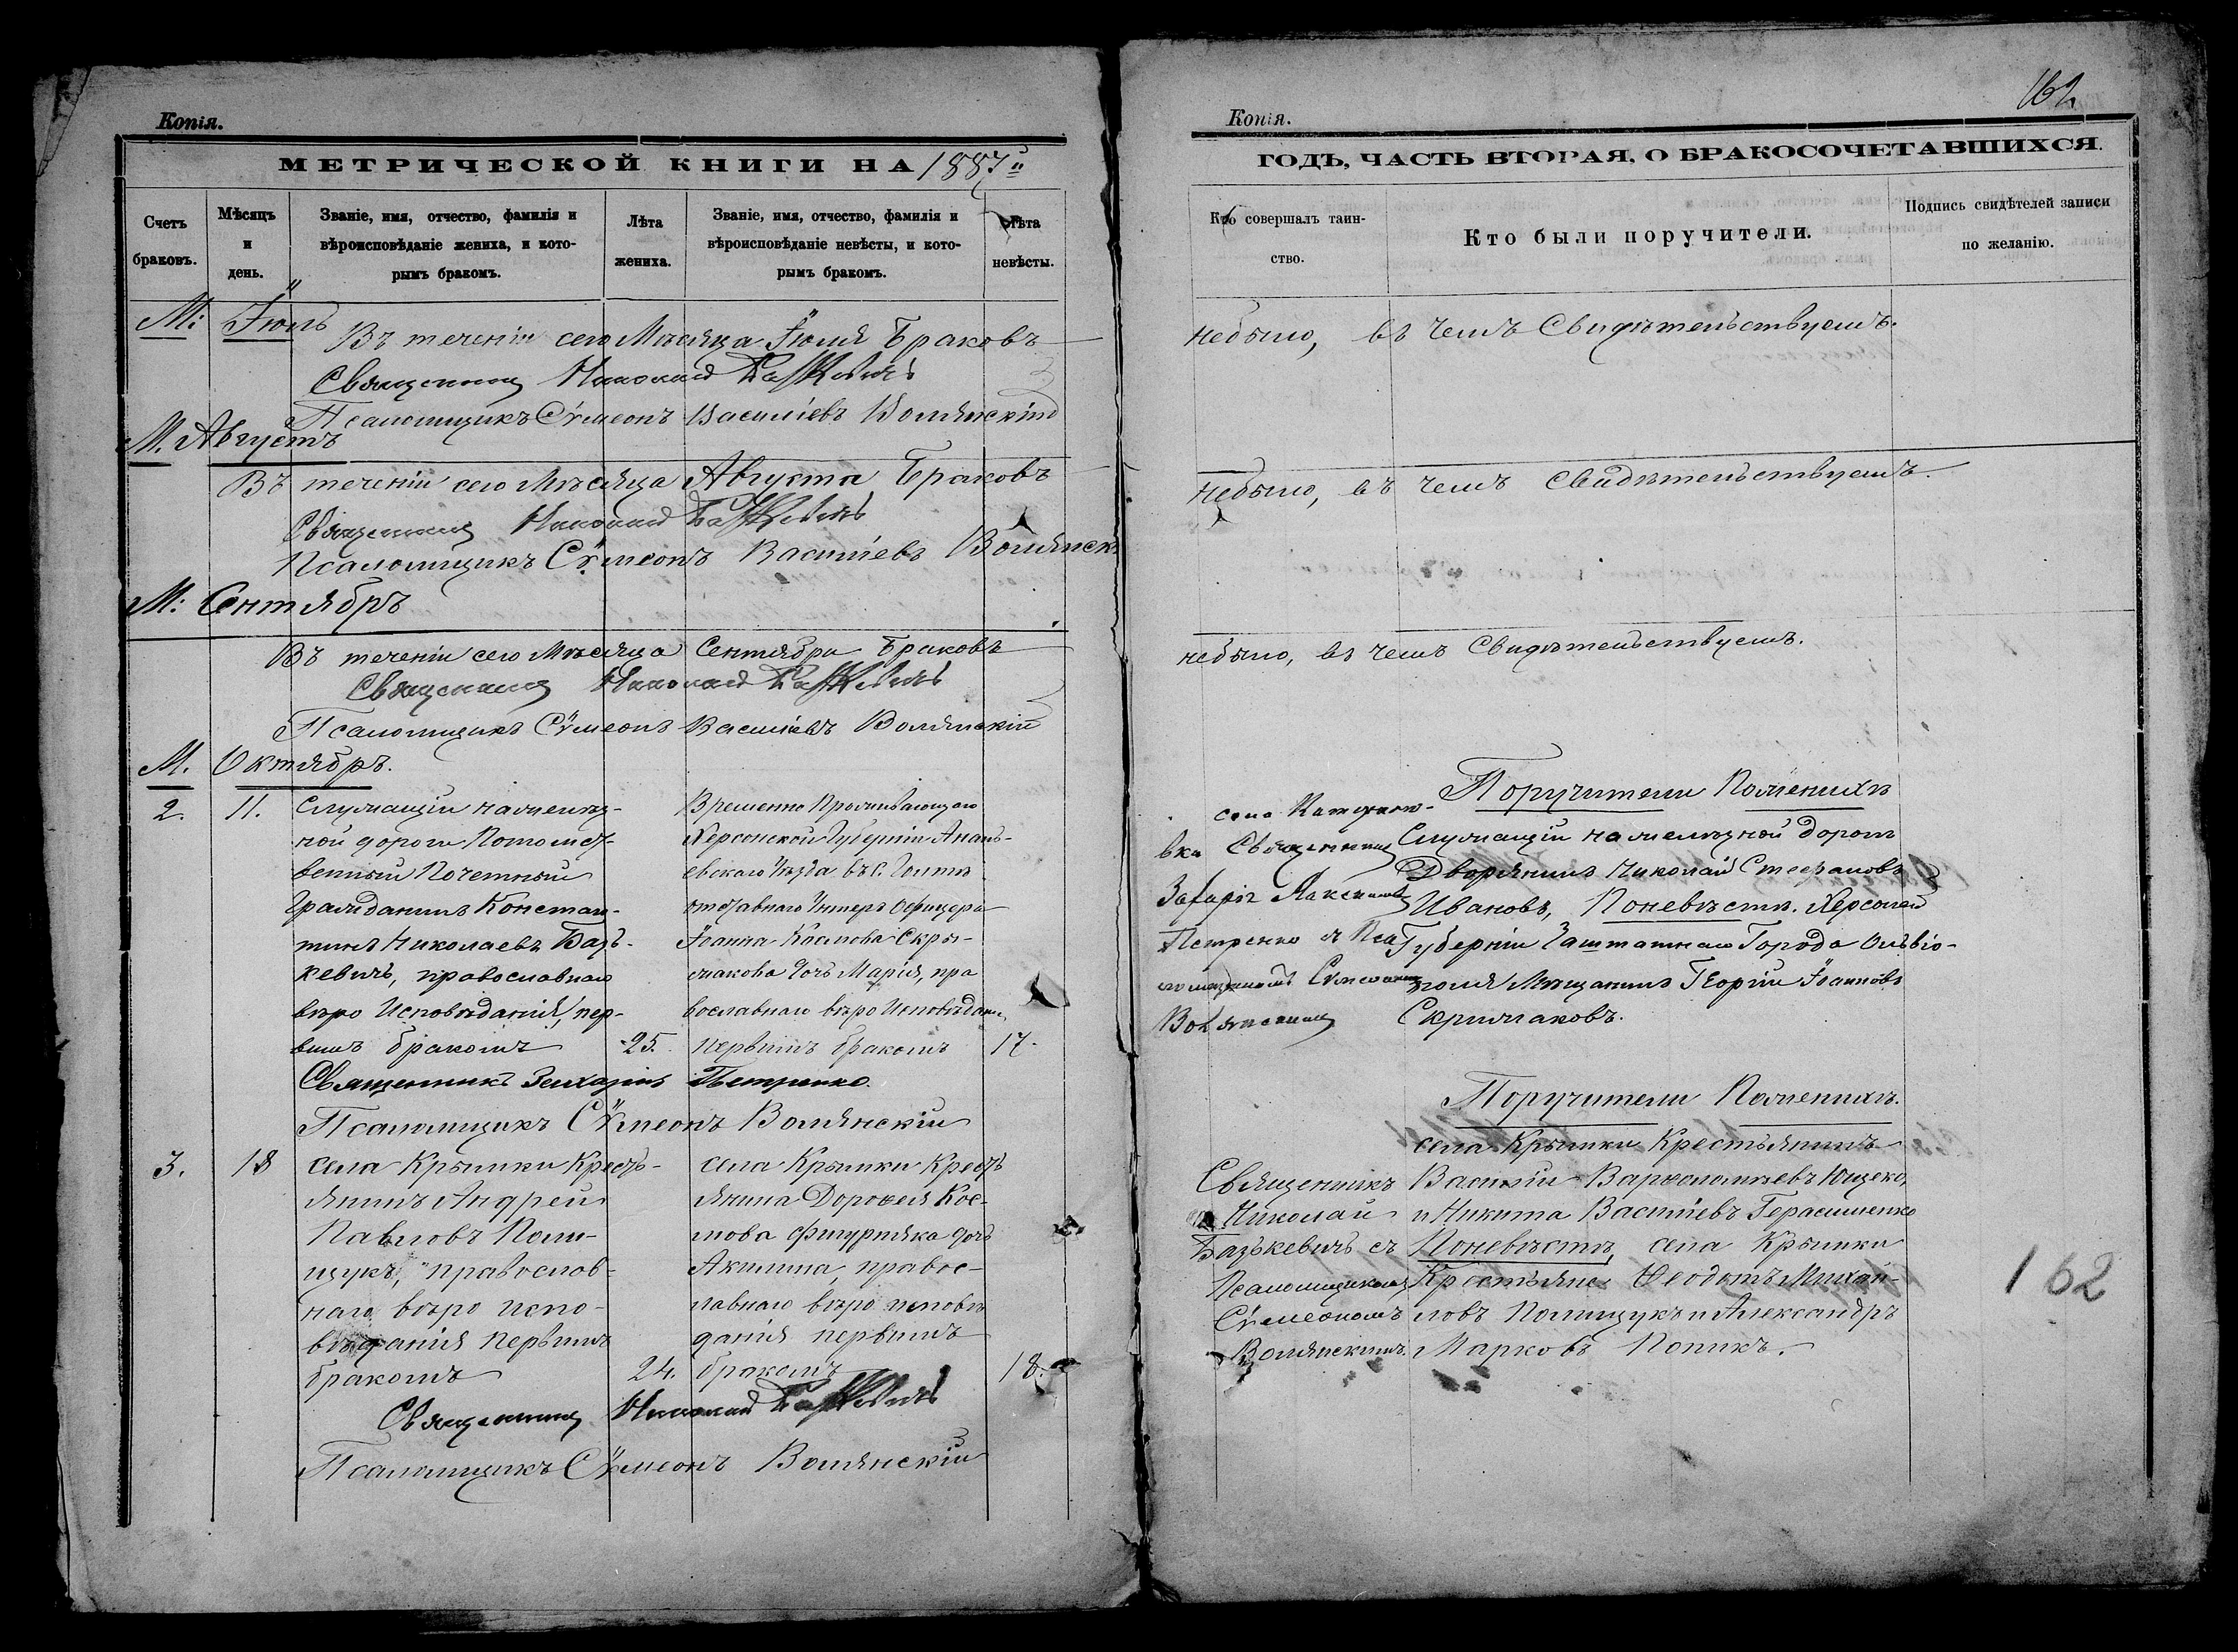 Копія.
МЕТРИЧЕСКОЙ КНИГИ НА 1887й
Счетъ браковъ.
Мѣсяцъ и день.
Званіе, имя, отчество, фамилія и вѣроисповѣданіе жениха, и которымъ бракомъ.
Лѣта жениха.
Званіе, имя, отчество, фамилія и вѣроисповѣданіе невѣсты, и которымъ бракомъ.
Лѣта невѣсты.
М: Іюль
Въ теченіи сего Мѣсяца Іюля Браковъ
Священникъ Николай Базькевичъ
Псаломщикъ Сѵмеонъ Василіевъ Волянскій
М. Августъ
Въ теченіи сего Мѣсяца Августа Браковъ
Священникъ Николай Базькевичъ
Псаломщикъ Сѵмеонъ Василіевъ Волянскі
М: Сентябрь
Въ теченіи сего Мѣсяца Сентября Браковъ
Священникъ Николай Базькевичъ
Псаломщикъ Сѵмеонъ Василіевъ Волянскій
М. Октябрь.
2.
11.
Служащій на желѣз-
ной дороги Потомст-
венный Почетный
Гражданинъ Констан-
тинъ Николаевъ Базь-
кевичъ, православнаго
вѣро Исповѣданія, пер-
вымъ бракомъ
25.
Временно Проживающаго
Херсонской Губерніи Анань-
евскаго Уѣзда въ с. Голтѣ
отставнаго Унтеръ Офицера
Іоанна Космова Скры-
жакова дочь Марія, пра
вославнаго вѣро Исповѣдані
первымъ бракомъ
17.
Священникъ Захарія Петренко.
Псаломщикъ Сѵмеонъ Волянскій
3.
18
села Крымки Кресть-
янинъ Андрей
Павловъ Поли-
щукъ, православ-
наго вѣро испо-
вѣданія первымъ
бракомъ
24.
села Крымки Кресть
янина Дорофея Кос-
мова Фигурняка дочь
Акилина, правос-
лавнаго вѣро исповѣ
данія первымъ
бракомъ
18.
Священникъ Николай Базькевичъ
Псаломщикъ Сѵмеонъ Волянскій
162
Копія.
ГОДЪ, ЧАСТЬ ВТОРАЯ, О БРАКОСОЧЕТАВШИХСЯ.
Кто совершалъ таинство.
Кто были поручители.
Подпись свидѣтелей записи по желанію.
небыло, въ чемъ Свидѣтельствуемъ.
небыло, въ чемъ Свидѣтельствуемъ.
небыло, въ чемъ Свидѣтельствуемъ.
села
вка Священникъ
Петренко
Волянскимъ
Поручители Поженихѣ
Служащій на желѣзной дорогѣ
Дворянинъ Николай Стефановъ
Ивановъ, Поневѣстѣ. Херсонской
Губерніи Заштатнаго Города Ольвіо-
поля Мѣщанинъ Георгій Іоанновъ
Скрижаковъ.
Священникъ
Николай
Базькевичъ съ
Псаломщикомъ
Сѵмеономъ
Волянскимъ.
Поручители Поженихѣ.
села Крымки Крестьянинъ
Василій Варфоломѣевъ Ющенко,
и Никита Василіевъ Герасименко
Поневѣстѣ, села Крымки
Крестьяне Ѳеодотъ Михай-
ловъ Полищукъ и Александръ
Марковъ Попикъ.
162